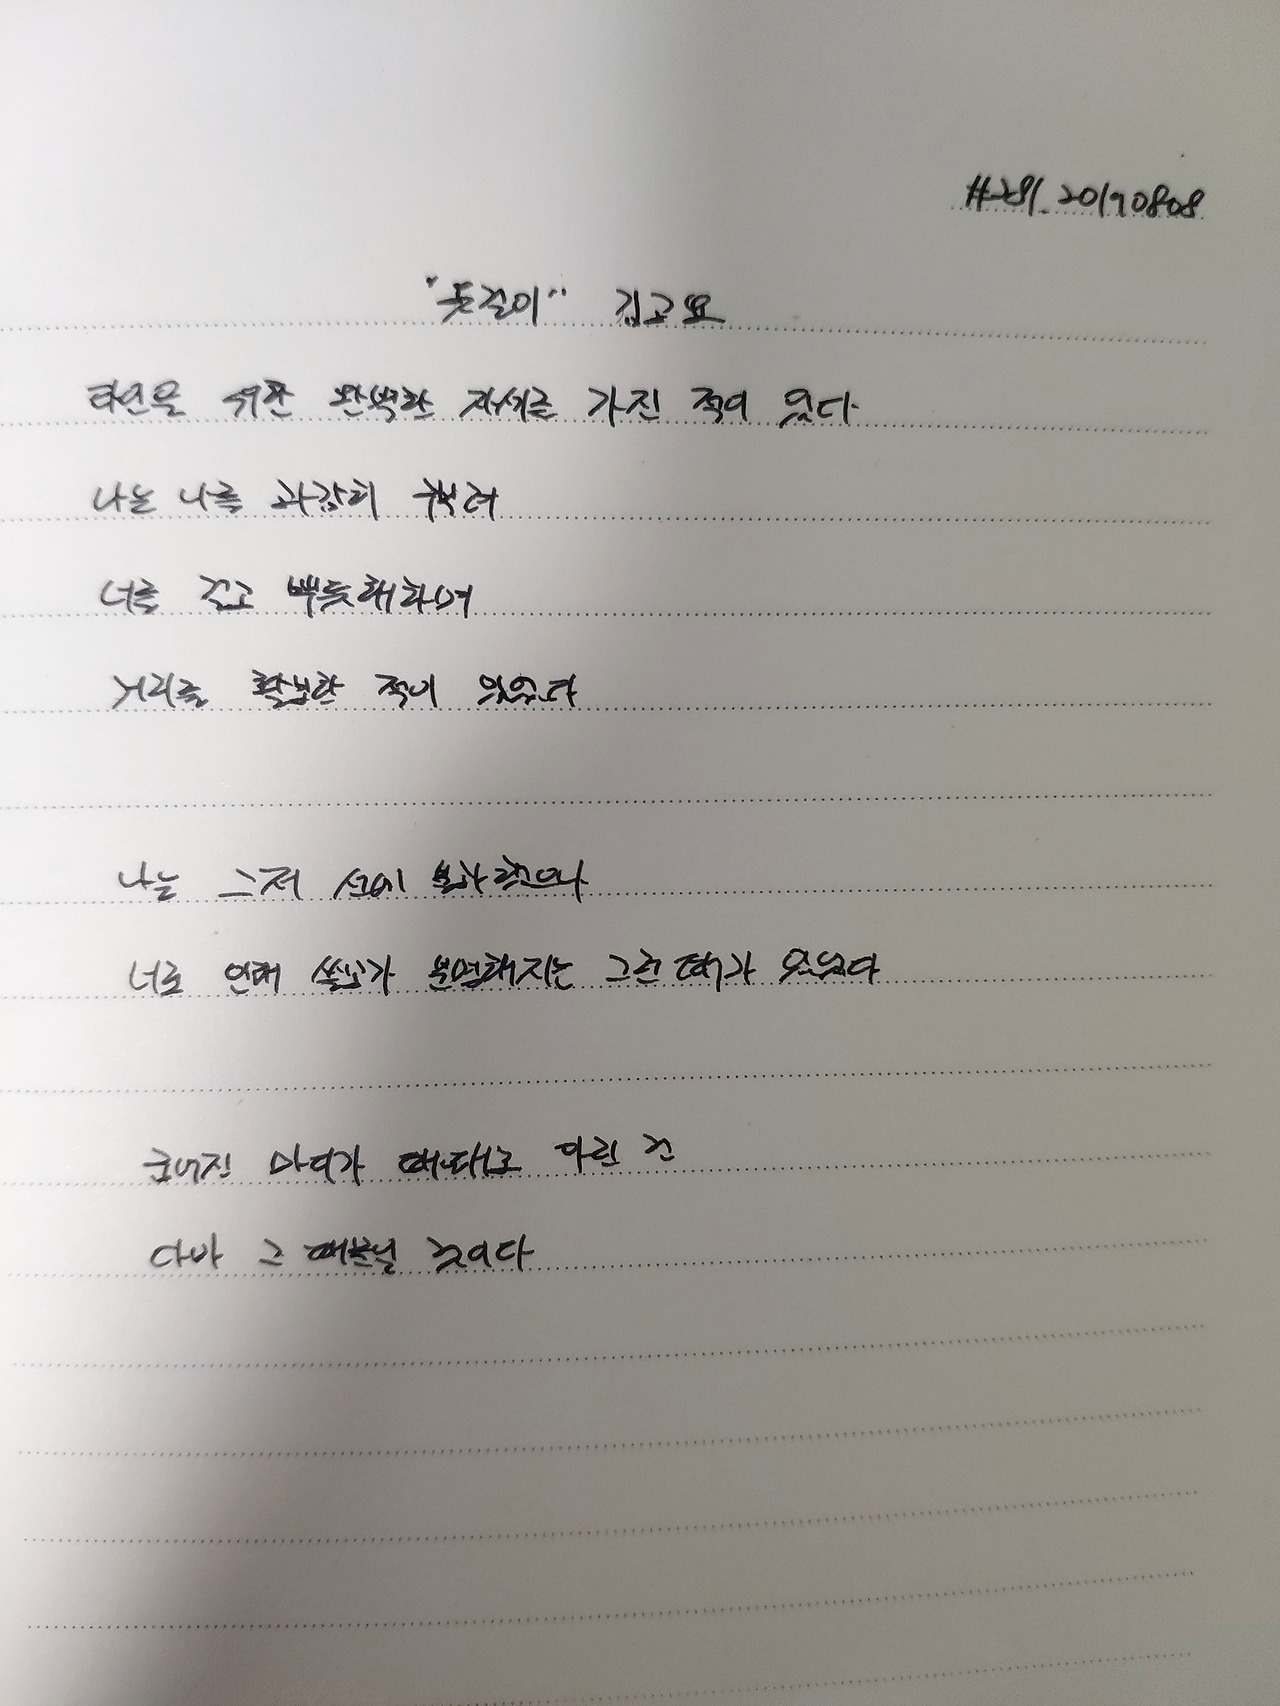 #281. 20190808
"옷걸이" 김고요
타인을 위한 완벽한 자세를 가진 적이 있다
나는 나를 과감히 구부려
너를 걸고 뿌듯해하며
거리를 활보한 적이 있었다
나는 그저 선에 불과했으나
너로 인해 쓸모가 분명해지는 그런 때가 있었다
굽어진 마디가 때때로 아린 건
다만 그 때문일 것이다